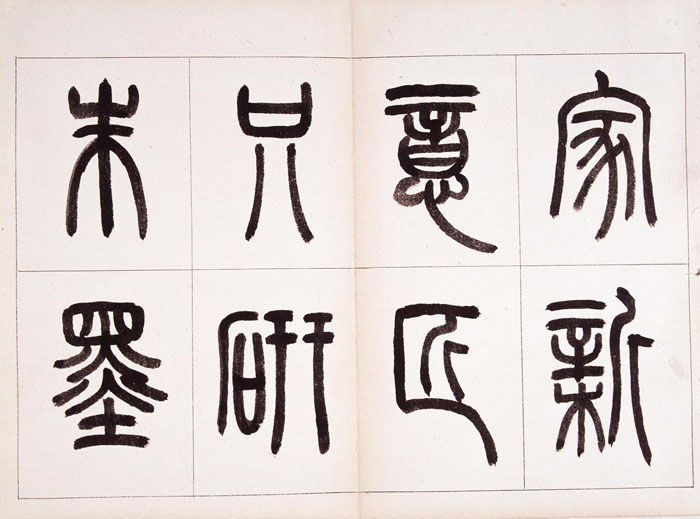 家新
意匠
只研
朱墨